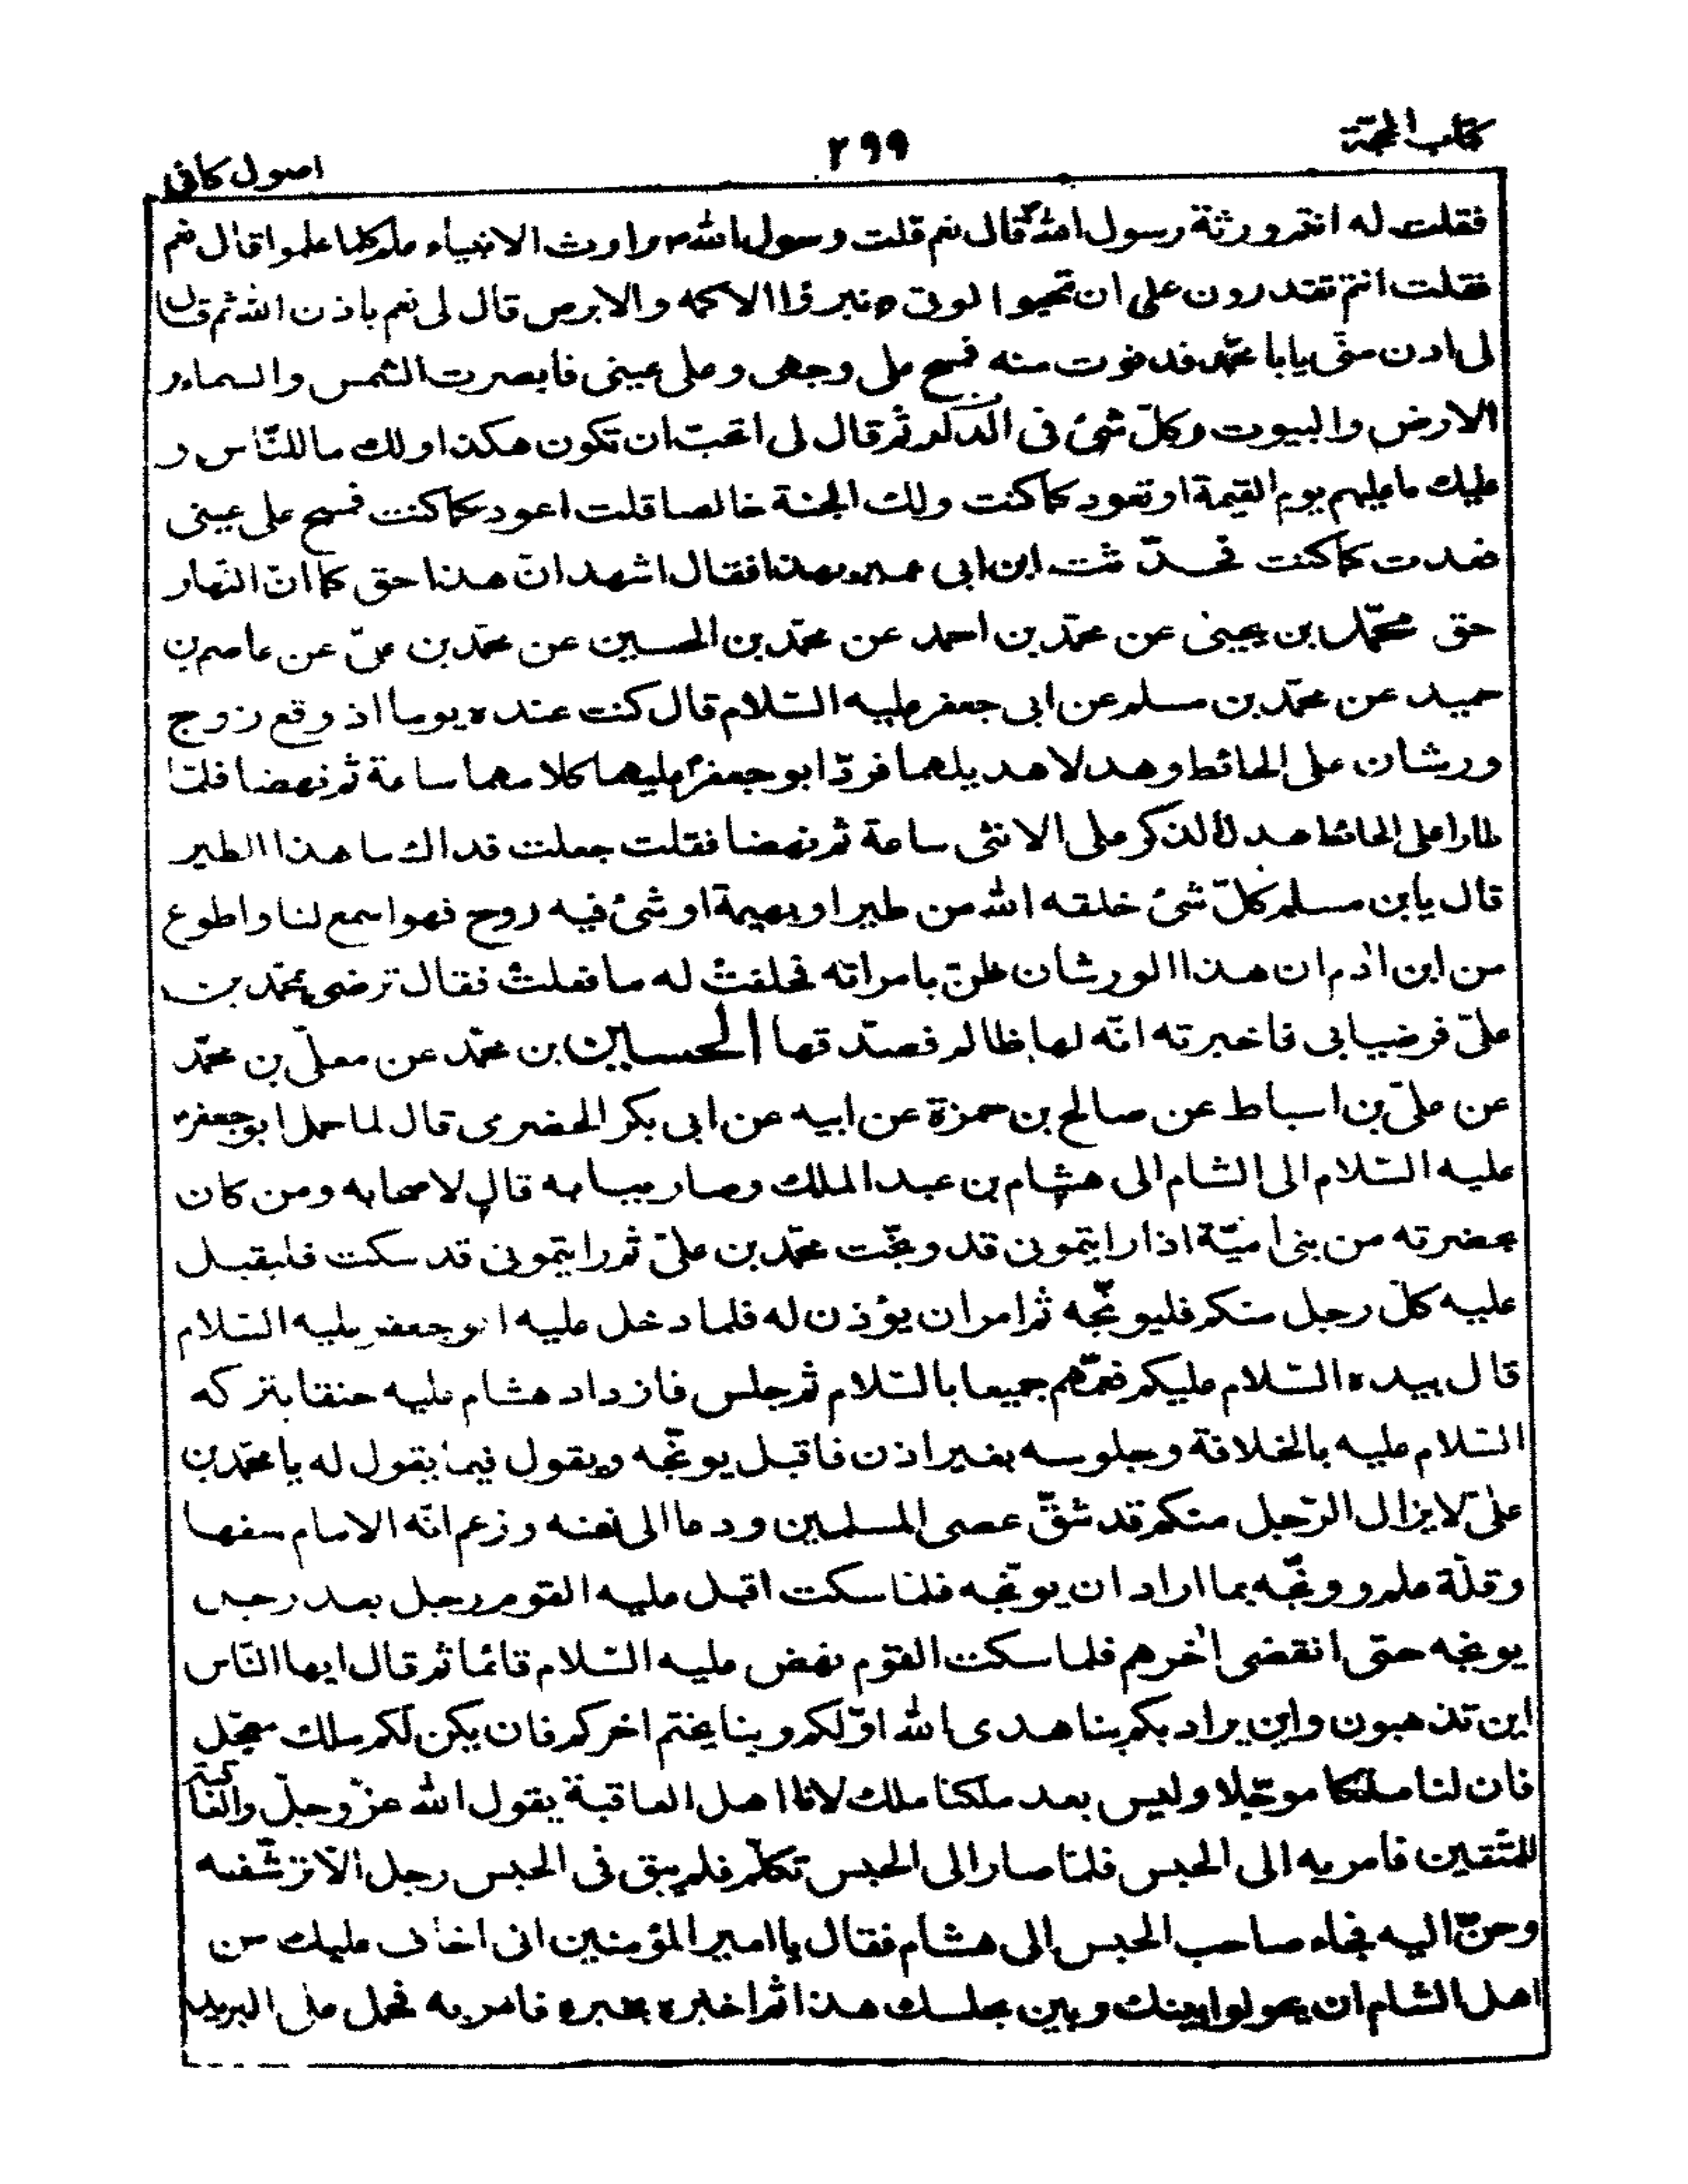 كتاب الحجّة
٢٩٩
اصول كافى
فقلت له انتم ورثة رسول الله قال نعم قلت رسول الله ص وارث الانبياء علم كلما علموا قال نعم
فقلت انتم تقدرون على ان تحيوا الموتى وتبرؤا الاكمه والابرص قال لى نعم باذن الله ثم قال
لى ادن منّى يا با محمّد فدنوت منه فمسح على وجهى وعلى عينى فابصرت الشمس والسماء و
الارض والبيوت وكلّ شئ فى الدار ثم قال لى اتحبّ ان تكون هكذا ولك ما للنّاس و
عليك ما عليهم يوم القيمة او تعود كما كنت ولك الجنة خالصا قلت اعود كما كنت فمسح على عينى
فعدت كما كنت فحدّثت ابن ابى عمير بهذا فقال اشهد انّ هذا حق كما انّ النّهار
حق محمّد بن يحيى عن محمّد بن احمد عن محمّد بن الحسين عن محمّد بن علىّ عن عاصم بن
حميد عن محمّد بن مسلم عن ابى جعفر عليه السّلام قال كنت عنده يوما اذ وقع زوج
ورشان على الحائط وهدلا هديلهما فردّ ابو جعفرؑ عليهما كلامهما ساعة ثم نهضا فلمّا
طارا على الحائط هدل الذكر على الانثى ساعة ثم نهضا فقلت جعلت فداك ما هذا الطير
قال يابن مسلم كلّ شئ خلقه الله من طير او بهيمة او شئ فيه روح فهو اسمع لنا واطوع
من ابن اٰدم ان هذا الورشان ظنّ بامراته فحلفت له ما فعلت فقال ترضى بمحمّد بن
علىّ فرضيا بى فاخبرته انّه لها ظالم فصدّقها الحسين بن محمّد عن معلّى بن محمّد
عن علىّ بن اسباط عن صالح بن حمزة عن ابيه عن ابى بكر الحضرمى قال لما حمل ابو جعفرؑ
عليه السّلام الى الشام الى هشام بن عبد الملك وصار ببابه قال لاصحابه ومن كان
بحضرته من بنى اميّة اذا رايتمونى قد وبّخت محمّد بن علىّ ثم رايتمونى قد سكت فليقبل
عليه كلّ رجل منكم فليوبّخه ثم امر ان يؤذن له فلما دخل عليه ابو جعفر عليه السّلام
قال بيده السّلام عليكم فعمّهم جميعا بالسّلام ثم جلس فازداد هشام عليه حنقا بتركه
السّلام عليه بالخلافة وجلوسه بغير اذن فاقبل يوبّخه ويقول فيما يقول له يا محمّد بن
علىّ لا يزال الرّجل منكم قد شقّ عصى المسلمين ودعا الى نفسه وزعم انّه الامام سفها
وقلّة علم ووبّخه بما اراد ان يوبّخه فلمّا سكت اقبل عليه القوم رجل بعد رجل
يوبخه حتى انقضى اٰخرهم فلما سكت القوم نهض عليه السّلام قائما ثم قال ايها النّاس
اين تذهبون واين يراد بكم بنا هدى الله اوّلكم وبنا يختم اخركم فان يكن لكم ملك معجّل
فان لنا ملكا موجّلا وليس بعد ملكنا ملك لانا اهل العاقبة يقول الله عزّ وجلّ والعاقبة
للمتّقين فامر به الى الحبس فلمّا صار الى الحبس تكلّم فلم يبق فى الحبس رجل الّا ترشّفه
وحنّ اليه فجاء صاحب الحبس الى هشام فقال يا امير المؤمنين انى اخاف عليك من
اهل الشام ان يحولوا بينك وبين مجلسك هذا ثم اخبره بخبره فامر به فحمل على البريد